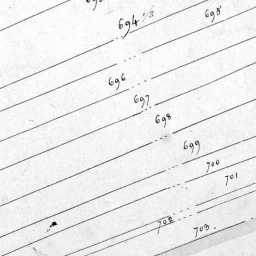 694 1/3
695
696
697
698
699
700
701
702
703.